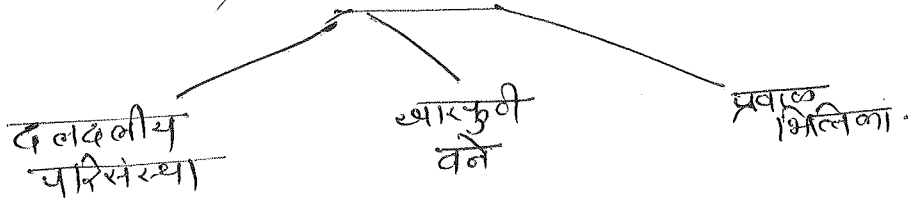 दलदलीय
परिसंस्था
खारफुटी
वने
प्रवाळ
भित्तिका.